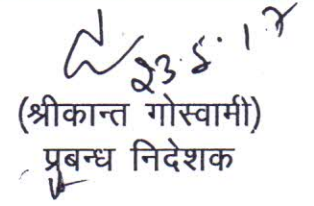 23.8.17
(श्रीकान्त गोस्वामी)
प्रबन्ध निदेशक